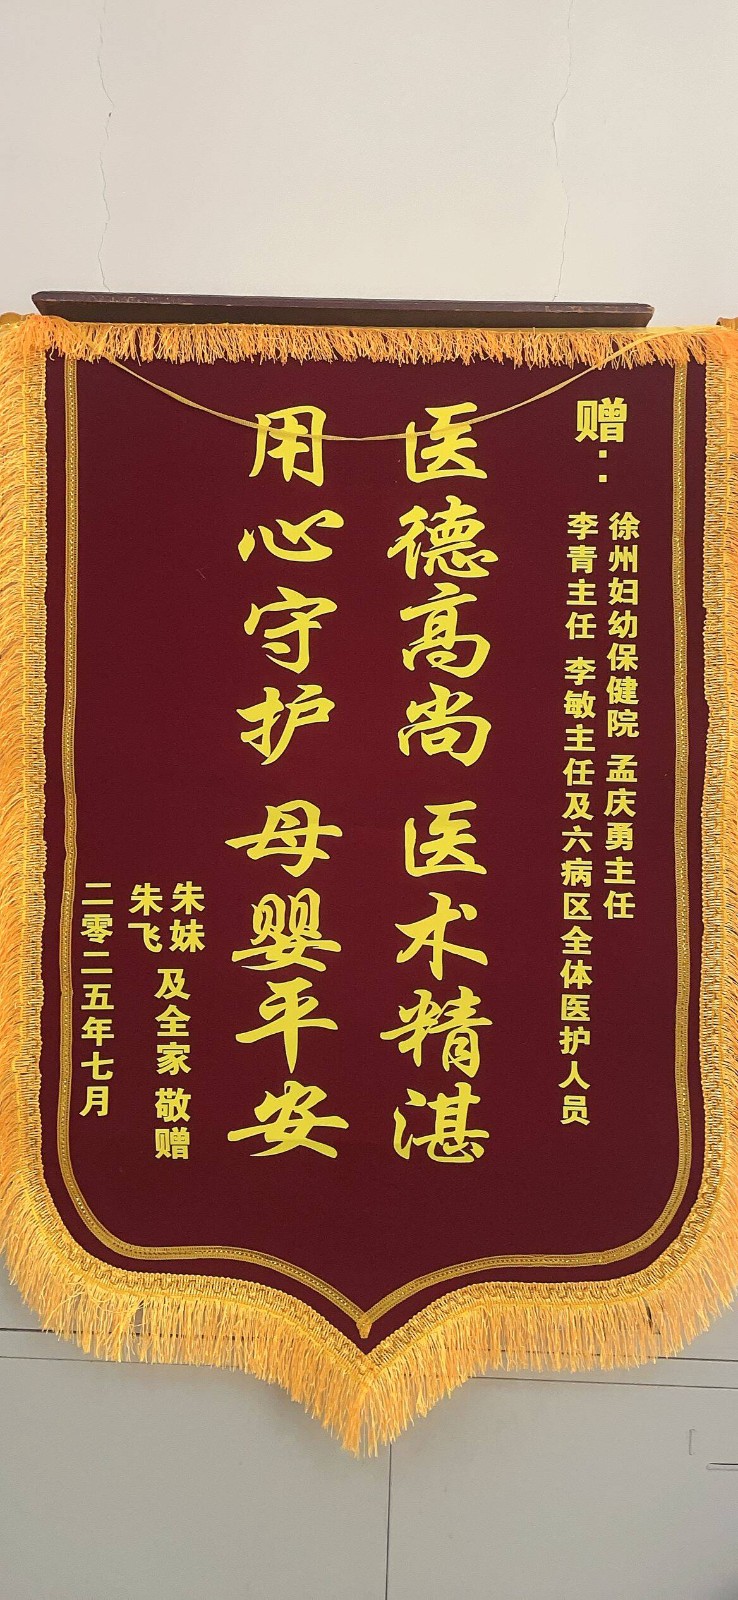 赠：
徐州妇幼保健院 孟庆勇主任
李青主任 李敏主任及六病区全体医护人员
医德高尚 医术精湛
用心守护 母婴平安
朱妹
朱飞
及全家 敬赠
二零二五年七月